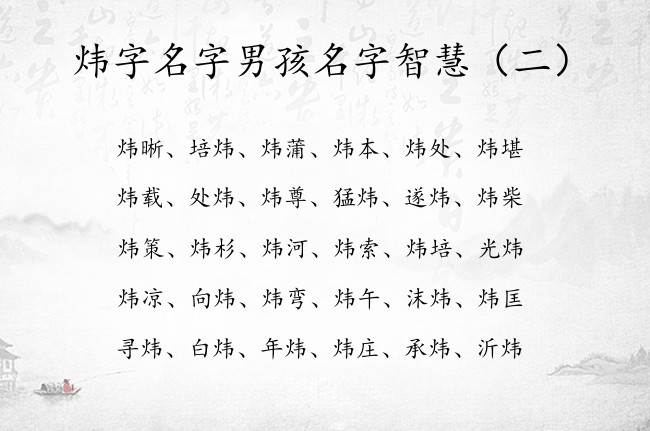 炜字名字男孩名字智慧（二）
炜晰、培炜、炜蒲、炜本、炜处、炜堪
炜载、处炜、炜尊、猛炜、遂炜、炜柴
炜策、炜杉、炜河、炜索、炜培、光炜
炜凉、向炜、炜弯、炜午、沫炜、炜匡
寻炜、白炜、年炜、炜庄、承炜、沂炜